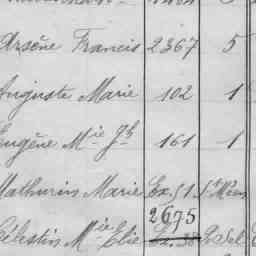 Arsène Francis 2367 5
Auguste Marie 102 1
Eugène Mie Jh 161 1
Mathurin Marie Ex. 51 St Méen
2675
Célestin Mie Elie Ex. 38 P. Sel